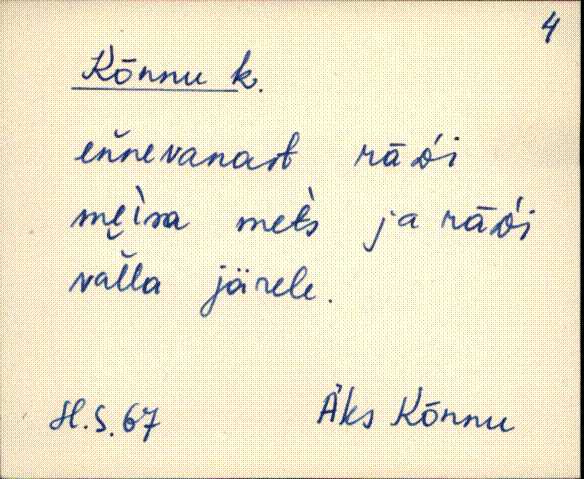 4
Kõnnu k.
eňnevanast rāǒ́i
męi̬sa met̀s ja rāǒ́i
vaľla järele.
H.S. 67
Äks Kõnnu